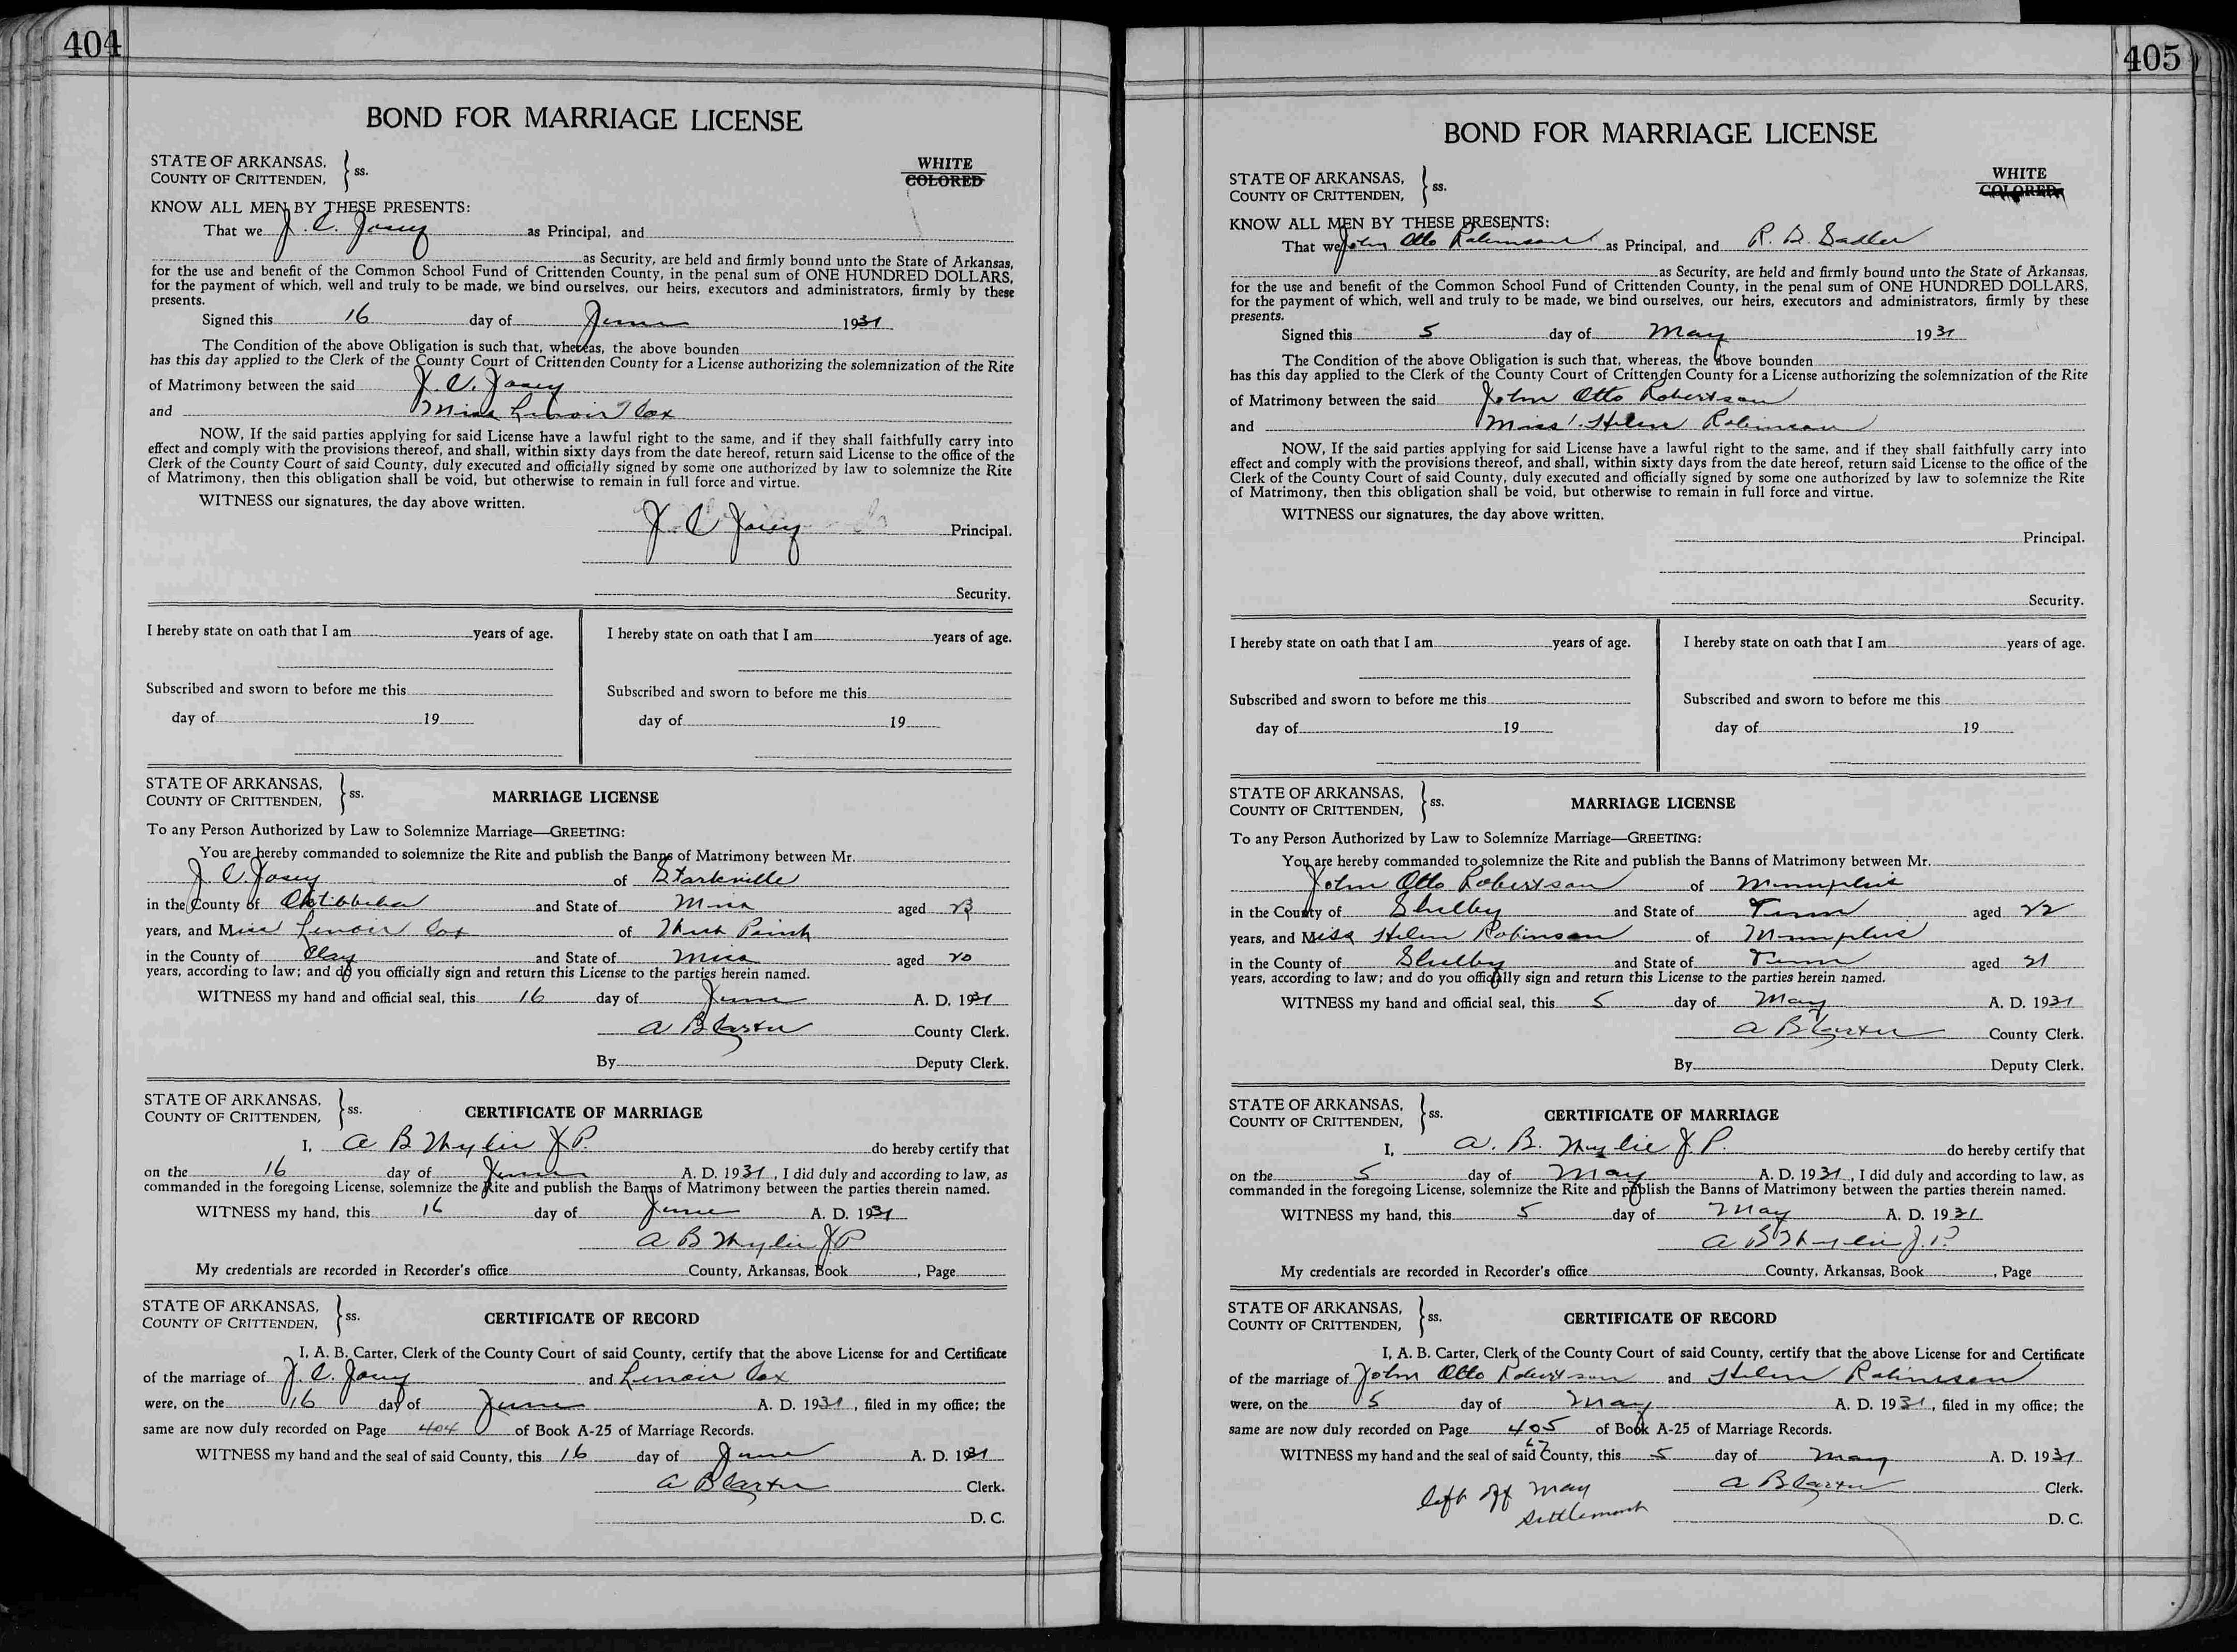 404
BOND FOR MARRIAGE LICENSE
STATE OF ARKANSAS,
COUNTY OF CRITTENDEN, } ss.
WHITE
COLORED
KNOW ALL MEN BY THESE PRESENTS:
That we J. C. Josey as Principal, and
as Security, are held and firmly bound unto the State of Arkansas,
for the use and benefit of the Common School Fund of Crittenden County, in the penal sum of ONE HUNDRED DOLLARS,
for the payment of which, well and truly to be made, we bind ourselves, our heirs, executors and administrators, firmly by these
presents.
Signed this 16 day of June 1931
The Condition of the above Obligation is such that, whereas, the above bounden
has this day applied to the Clerk of the County Court of Crittenden County for a License authorizing the solemnization of the Rite
of Matrimony between the said J. C. Josey
and Miss Lenoir Cox
NOW, If the said parties applying for said License have a lawful right to the same, and if they shall faithfully carry into
effect and comply with the provisions thereof, and shall, within sixty days from the date hereof, return said License to the office of the
Clerk of the County Court of said County, duly executed and officially signed by some one authorized by law to solemnize the Rite
of Matrimony, then this obligation shall be void, but otherwise to remain in full force and virtue.
WITNESS our signatures, the day above written.
J. C Josey Principal.
Security.
I hereby state on oath that I am years of age. I hereby state on oath that I am years of age.
Subscribed and sworn to before me this Subscribed and sworn to before me this
day of 19 day of 19
STATE OF ARKANSAS,
COUNTY OF CRITTENDEN, } ss. MARRIAGE LICENSE
To any Person Authorized by Law to Solemnize Marriage—GREETING:
You are hereby commanded to solemnize the Rite and publish the Banns of Matrimony between Mr.
J. C. Josey of Starkville
in the County of Oktibbeha and State of Miss aged 23
years, and Miss Lenoir Cox of West Point
in the County of Clay and State of Miss aged 20
years, according to law; and do you officially sign and return this License to the parties herein named.
WITNESS my hand and official seal, this 16 day of June A. D. 1931
A B Carter County Clerk.
By Deputy Clerk.
STATE OF ARKANSAS,
COUNTY OF CRITTENDEN, } ss. CERTIFICATE OF MARRIAGE
I, A B Wylie J P. do hereby certify that
on the 16 day of June A. D. 1931, I did duly and according to law, as
commanded in the foregoing License, solemnize the Rite and publish the Banns of Matrimony between the parties therein named.
WITNESS my hand, this 16 day of June A. D. 1931
A B Wylie J P
My credentials are recorded in Recorder's office County, Arkansas, Book , Page
STATE OF ARKANSAS,
COUNTY OF CRITTENDEN, } ss. CERTIFICATE OF RECORD
I, A. B. Carter, Clerk of the County Court of said County, certify that the above License for and Certificate
of the marriage of J. C. Josey and Lenoir Cox
were, on the 16 day of June A. D. 1931, filed in my office; the
same are now duly recorded on Page 404 of Book A-25 of Marriage Records.
WITNESS my hand and the seal of said County, this 16 day of June A. D. 1931
A B Carter Clerk.
D. C.
405
BOND FOR MARRIAGE LICENSE
STATE OF ARKANSAS,
COUNTY OF CRITTENDEN, } ss.
WHITE
COLORED
KNOW ALL MEN BY THESE PRESENTS:
That we John Otto Robinson as Principal, and R. D. Sadler
as Security, are held and firmly bound unto the State of Arkansas,
for the use and benefit of the Common School Fund of Crittenden County, in the penal sum of ONE HUNDRED DOLLARS,
for the payment of which, well and truly to be made, we bind ourselves, our heirs, executors and administrators, firmly by these
presents.
Signed this 5 day of May 1931
The Condition of the above Obligation is such that, whereas, the above bounden
has this day applied to the Clerk of the County Court of Crittenden County for a License authorizing the solemnization of the Rite
of Matrimony between the said John Otto Robertson
and Miss Helen Robinson
NOW, If the said parties applying for said License have a lawful right to the same, and if they shall faithfully carry into
effect and comply with the provisions thereof, and shall, within sixty days from the date hereof, return said License to the office of the
Clerk of the County Court of said County, duly executed and officially signed by some one authorized by law to solemnize the Rite
of Matrimony, then this obligation shall be void, but otherwise to remain in full force and virtue.
WITNESS our signatures, the day above written.
Principal.
Security.
I hereby state on oath that I am years of age. I hereby state on oath that I am years of age.
Subscribed and sworn to before me this Subscribed and sworn to before me this
day of 19 day of 19
STATE OF ARKANSAS,
COUNTY OF CRITTENDEN, } ss. MARRIAGE LICENSE
To any Person Authorized by Law to Solemnize Marriage—GREETING:
You are hereby commanded to solemnize the Rite and publish the Banns of Matrimony between Mr.
John Otto Robertson of Memphis
in the County of Shelby and State of Tenn aged 22
years, and Miss Helen Robinson of Memphis
in the County of Shelby and State of Tenn aged 21
years, according to law; and do you officially sign and return this License to the parties herein named.
WITNESS my hand and official seal, this 5 day of May A. D. 1931
A B Carter County Clerk.
By Deputy Clerk.
STATE OF ARKANSAS,
COUNTY OF CRITTENDEN, } ss. CERTIFICATE OF MARRIAGE
I, A. B. Wylie J. P. do hereby certify that
on the 5 day of May A. D. 1931, I did duly and according to law, as
commanded in the foregoing License, solemnize the Rite and publish the Banns of Matrimony between the parties therein named.
WITNESS my hand, this 5 day of May A. D. 1931
A B Wylie J. P.
My credentials are recorded in Recorder's office County, Arkansas, Book , Page
STATE OF ARKANSAS,
COUNTY OF CRITTENDEN, } ss. CERTIFICATE OF RECORD
I, A. B. Carter, Clerk of the County Court of said County, certify that the above License for and Certificate
of the marriage of John Otto Robertson and Helen Robinson
were, on the 5 day of May A. D. 1931, filed in my office; the
same are now duly recorded on Page 405 of Book A-25 of Marriage Records.
WITNESS my hand and the seal of said County, this 5 day of May A. D. 1931
A B Carter Clerk.
left off May
settlement
D. C.